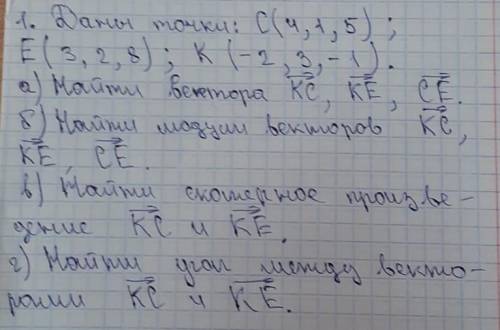 1. Даны точки: C(4,1,5);
E(3,2,8); K(-2,3,-1).
а) Найти вектора KC, KE, CE.
б) Найти модули векторов KC,
KE, CE.
в) Найти скалярное произве-
дение KC и KE.
г) Найти угол между векто-
рами KC и KE.